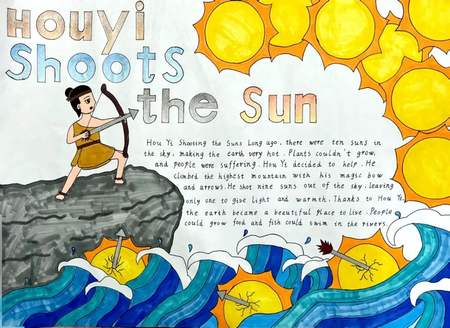 Houyi
Shoots
the Sun
Hou Yi Shooting the Suns Long ago, there were ten suns in
the sky, making the earth very hot. Plants couldn't grow,
and people were suffering. Hou Yi decided to help. He
climbed the highest mountain with his magic bow
and arrows. He shot nine suns out of the sky, leaving
only one to give light and warmth. Thanks to Hou Yi,
the earth became a beautiful place to live. People
could grow food and fish could swim in the rivers.